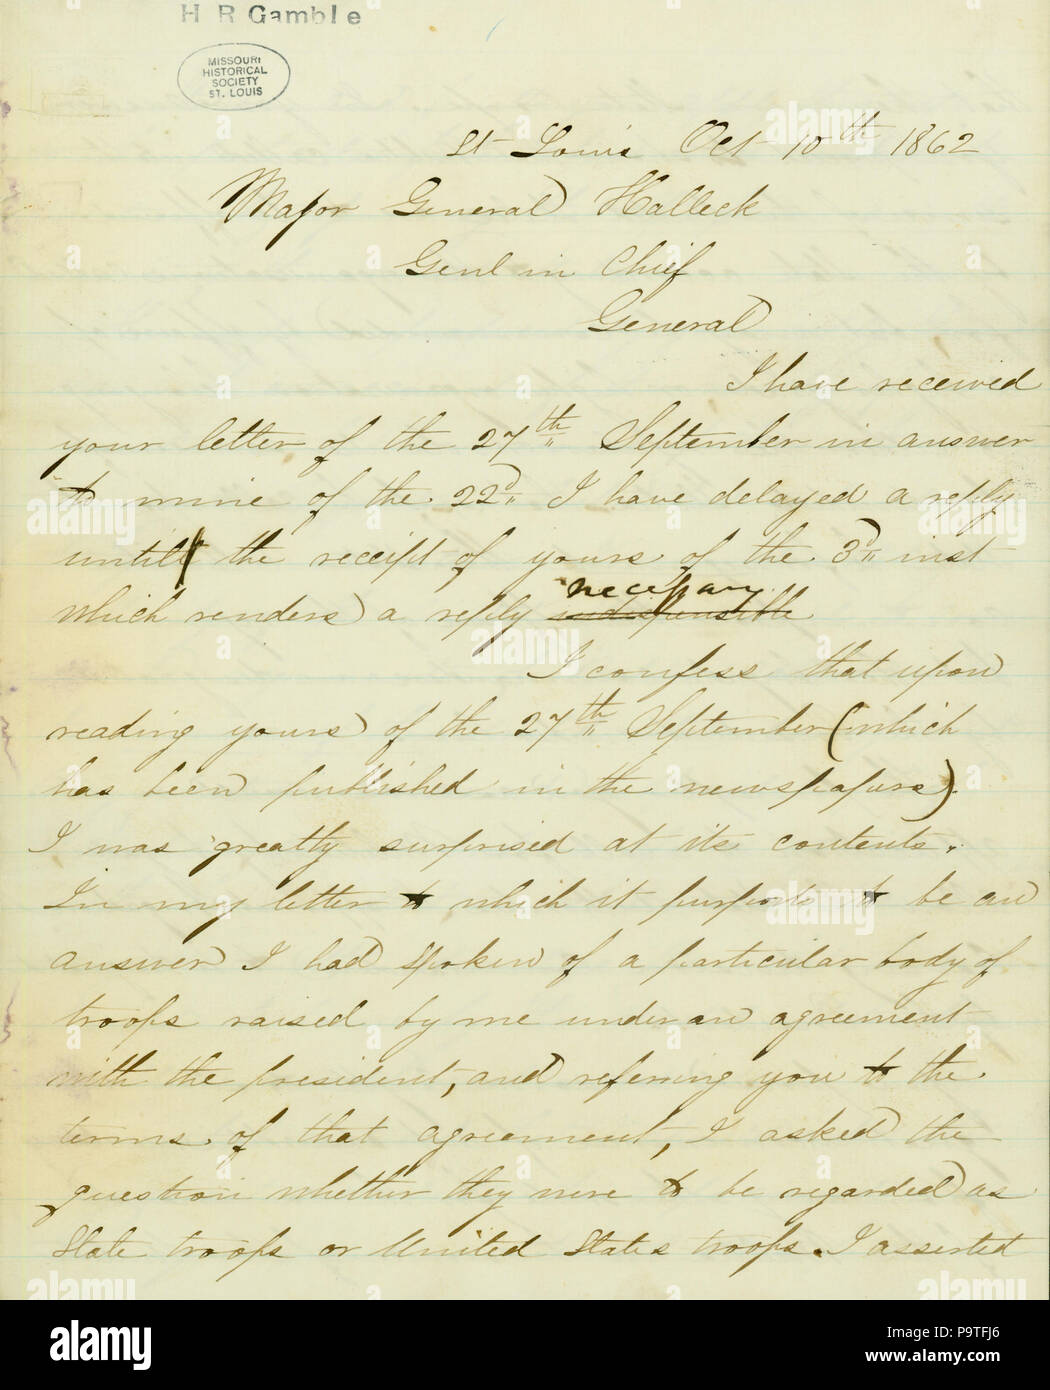 H R Gamble
MISSOURI
HISTORICAL
SOCIETY
ST. LOUIS
St Louis Oct 10th 1862
Major General Halleck
Genl in Chief
General
I have received
your letter of the 27th September in answer
to mine of the 22d I have delayed a reply
until the receipt of yours of the 3d inst
which renders a reply indispensible necessary
I confess that upon
reading yours of the 27th September (which
has been published in the newspapers)
I was greatly surprised at its contents.
In my letter to which it purports to be an
answer I had spoken of a particular body of
troops raised by me under an agreement
with the president, and referring you to the
terms of that agreement, I asked the
question whether they were to be regarded as
State troops or United States troops. I asserted
alamy
Image ID: P9TFJ6
www.alamy.com